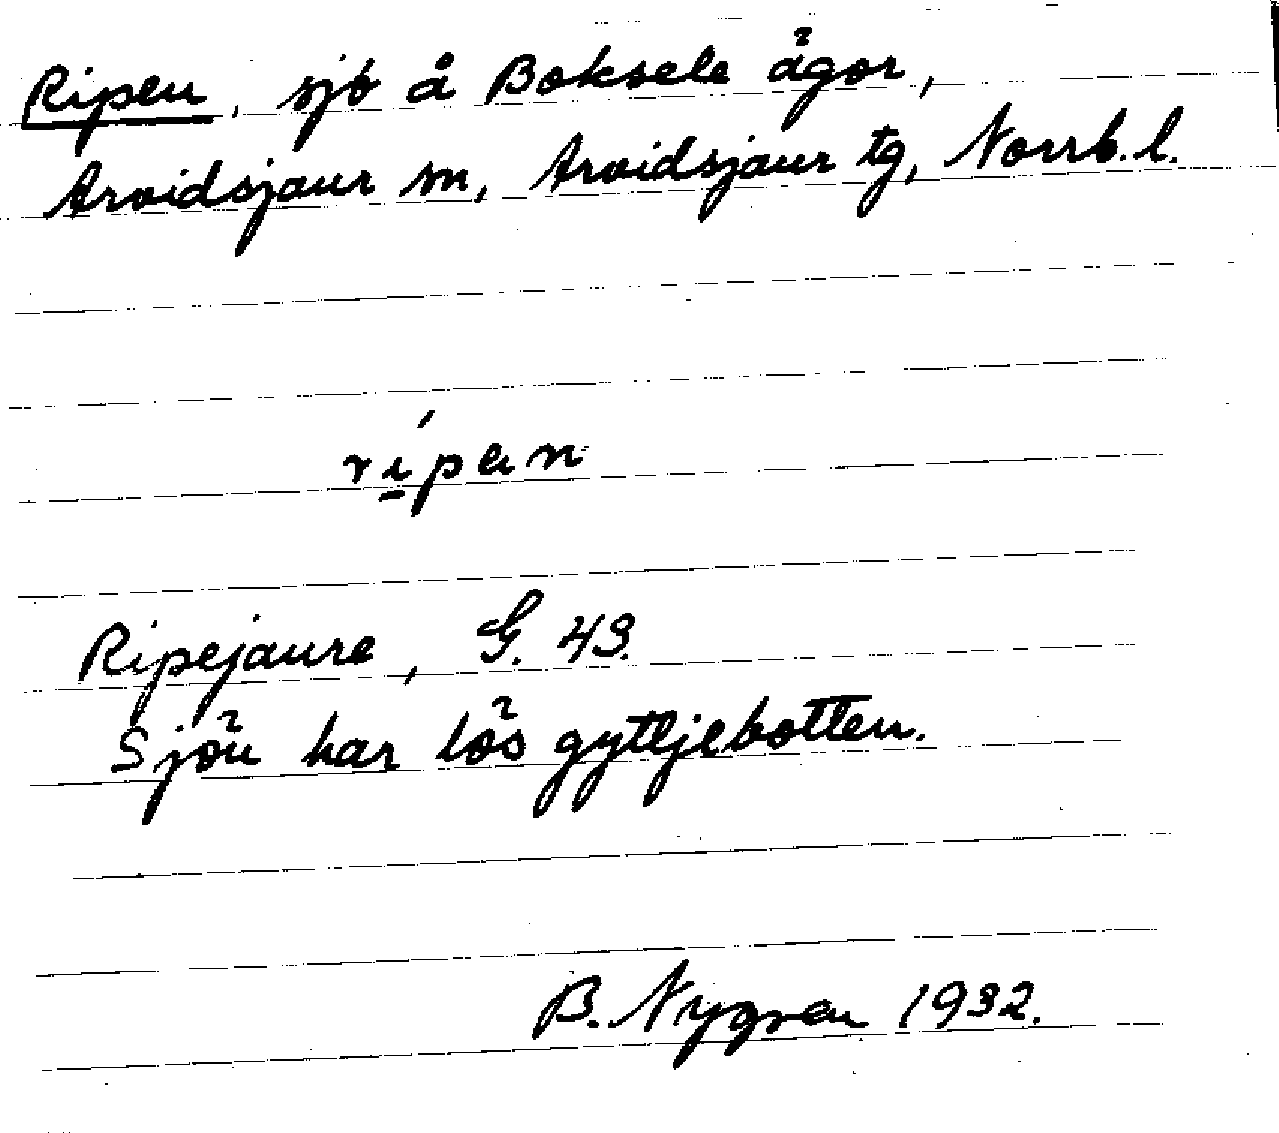 Ripen, sjö å Boksele ägor,
Arvidsjaur sn, Arvidsjaur tg, Norrb. l.
rípan
Ripejaure, G. 43.
Sjön har lös gyttjebotten.
B. Nygren 1932.